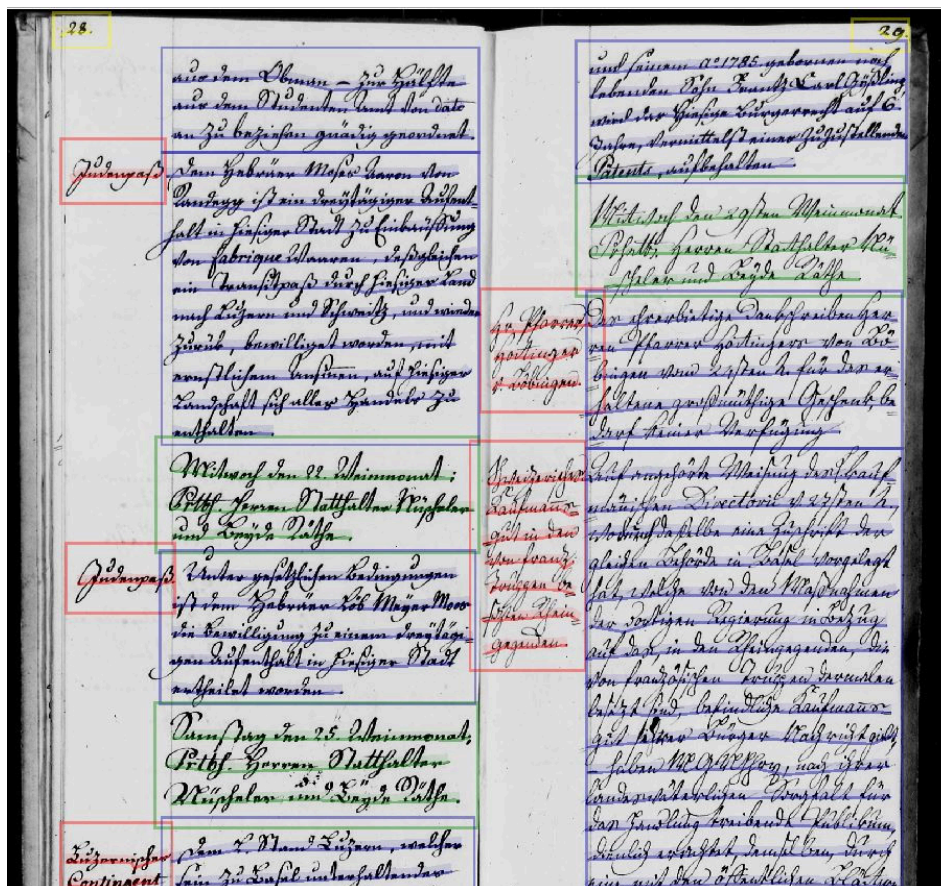 28.
aus dem Obman — zur Hälfte
aus dem Studenten Amt von dato
an zu beziehen gnädig geordnet.
Judenpaß
Dem Hebräer Moses Aaron von
Randegg ist ein dreytägiger Aufent-
halt in hiesiger Stadt zu Einkauffung
von Fabrique Waaren, desgleichen
ein Transitpaß durch hiesiges Land
nach Luzern und Schweitz, und wieder
zurük, bewilliget worden, mit
ernstlichem Ansinnen, auf hiesiger
Landschaft sich alles Handels zu
enthalten.
Mitwoch den 22. Weinmonat;
Herren Statthalter Nüscheler
und Beyde Räthe.
Judenpaß.
Unter gesetzlichen Bedingungen
ist dem Hebräer Löb Meyer Moos
die Bewilligung zu einem dreytägi-
gen Aufenthalt in hiesiger Stadt
ertheilet worden.
Samstag den 25. Weinmonat;
Herren Statthalter
Nüscheler und Beyde Räthe.
Luzernischer
Contingent
Dem L. Stand Luzern, welcher
sein zu Basel unterhaltendes
29.
und seinem Aº 1785. gebornen noch
lebenden Sohn Frantz Carl
wird das hiesige Burgerrecht auf 6.
Jahre, vermittelst einer zuzustellenden
Patents, aufbehalten
Mitwoch den 29sten Weinmonat
Herren Statthalter Nü-
scheler und Beyde Räthe
Hr. Pfarrer
Hottinger
v. Böbingen.
Das ehrerbietige Dankschreiben Her-
ren Pfarrer Hottingers von Bö-
bingen vom 21sten für das er-
haltene großmüthige Geschenk, be-
darf keiner Verfügung
Schweizerisches
Kaufmanns-
gut in den
von Franz.
Truppen be-
setzten Rhein-
gegenden.
Auf angehörte Weisung des Kauf-
männischen Directorii v. 27sten
wodurch dasselbe eine Zuschrift der
gleichen Behörde in Basel vorgelegt
hat, welche von den Maßnahmen
der dortigen Regierung in Bezug
auf das, in den Rheingegenden, die
von französischen Truppen dermalen
besetzt sind, befindliche Kaufmanns-
gut ihrer Bürger Nachricht giebt,
— haben nach ihrer
landesväterlichen Sorgfalt für
das Handlung treibende Publikum,
dienlich erachtet demselben, durch
eine mit den öffentlichen